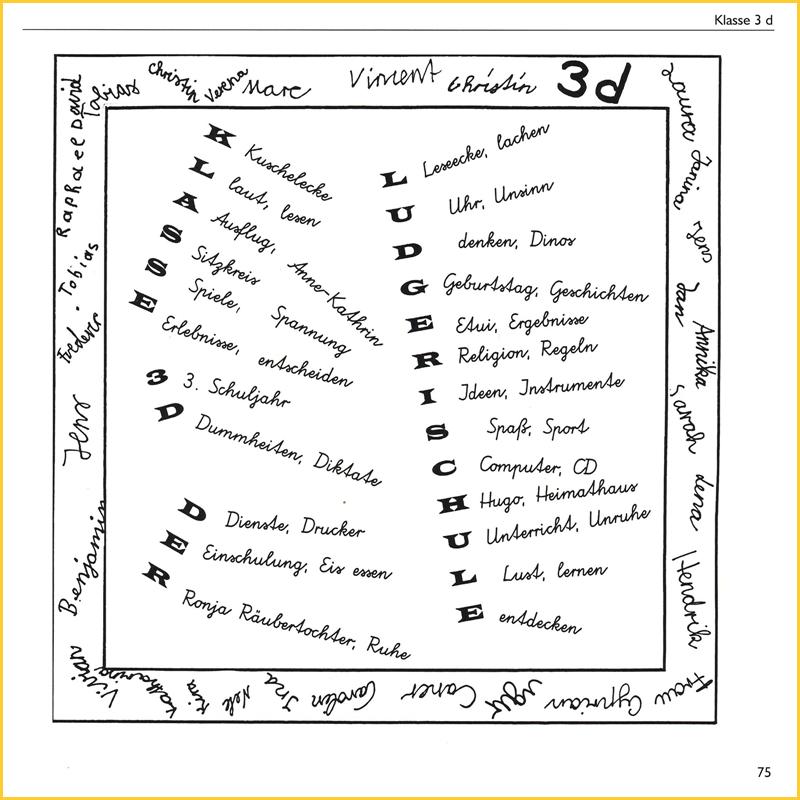 Klasse 3 d
Christin
Verena
Marc
Vincent
Christin
3d
Tobias
David
Raphael
Tobias
Frederic
Jens
Benjamin
Laura
Janina
Jens
Jan
Annika
Sarah
Lena
Hendrik
K Kuschelecke
L laut, lesen
A Ausflug, Anne-Kathrin
S Sitzkreis
S Spiele, Spannung
E Erlebnisse, entscheiden
3 3. Schuljahr
D Dummheiten, Diktate
D Dienste, Drucker
E Einschulung, Eis essen
R Ronja Räubertochter, Ruhe
L Leseecke, lachen
U Uhr, Unsinn
D denken, Dinos
G Geburtstag, Geschichten
E Etui, Ergebnisse
R Religion, Regeln
I Ideen, Instrumente
S Spaß, Sport
C Computer, CD
H Hugo, Heimathaus
U Unterricht, Unruhe
L Lust, lernen
E entdecken
Vivian
Katharina
Kira
Nele
Ina
Carolin
Caner
Frau Cyprian
75